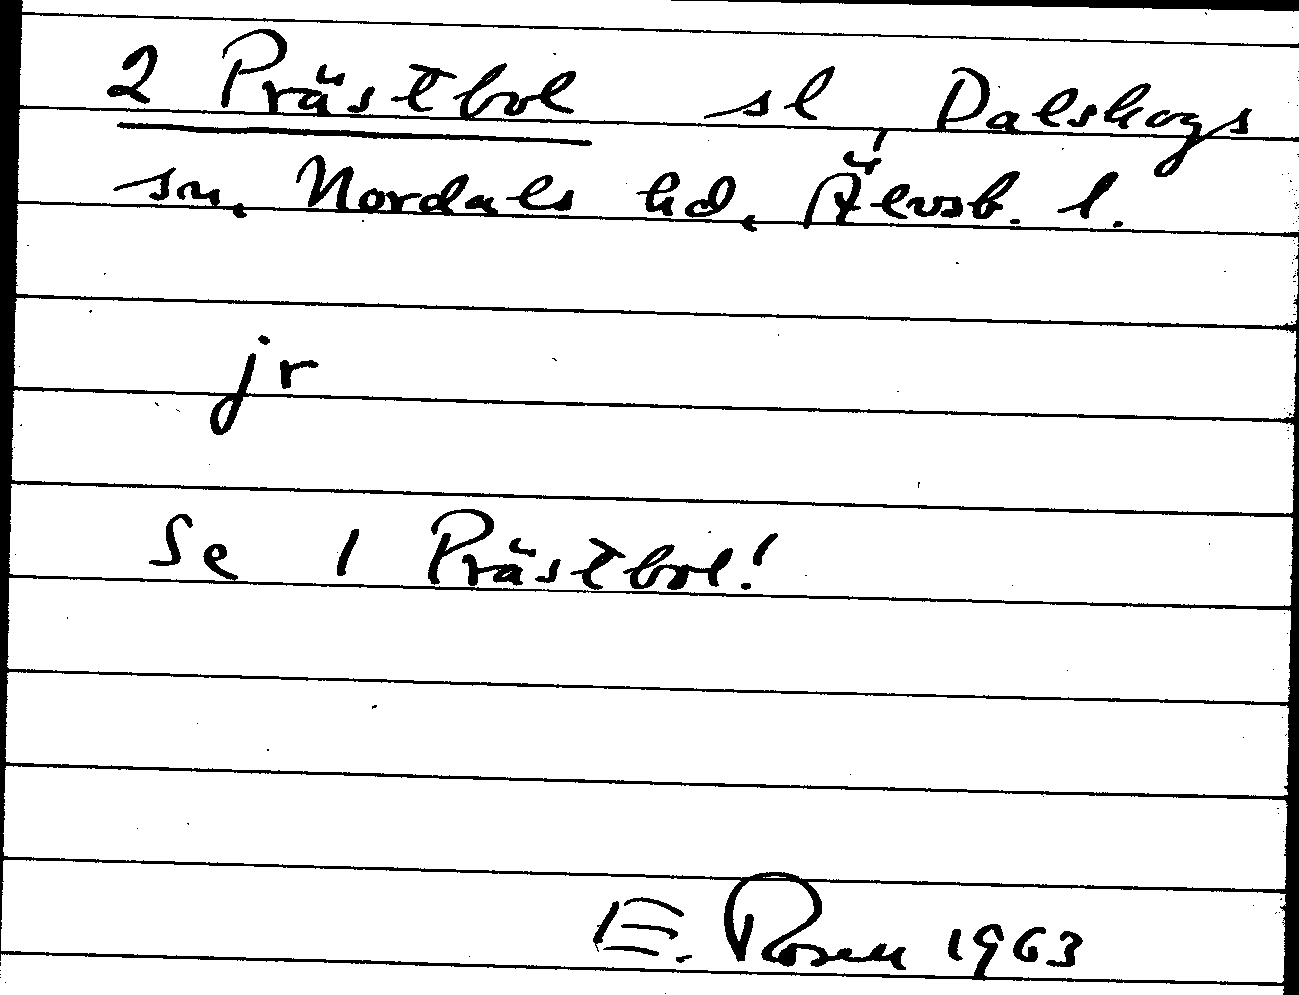 2 Prästbol sl, Dalskogs
sn, Nordals hd, Älvsb. l.
jr
Se 1 Prästbol!
E. Rosen 1963